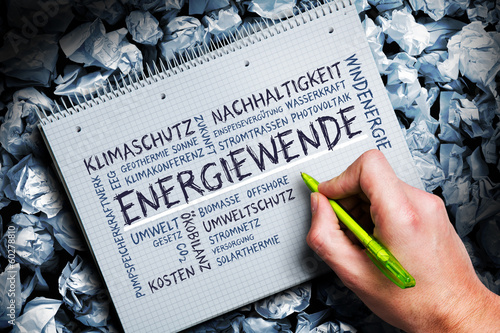 NACHHALTIGKEIT
KLIMASCHUTZ
ZUKUNFT
EINSPEISEVERGÜTUNG WASSERKRAFT
WINDENERGIE
EEG GEOTHERMIE SONNE
STROMTRASSEN PHOTOVOLTAIK
KLIMAKONFERENZ
ENERGIEWENDE
PUMPSPEICHERKRAFTWERK
BIOMASSE OFFSHORE
UMWELT
ÖKOBILANZ
UMWELTSCHUTZ
GESETZ
STROMNETZ
VERSORGUNG
KOSTEN
SOLARTHERMIE
© Fotolia
#60278810